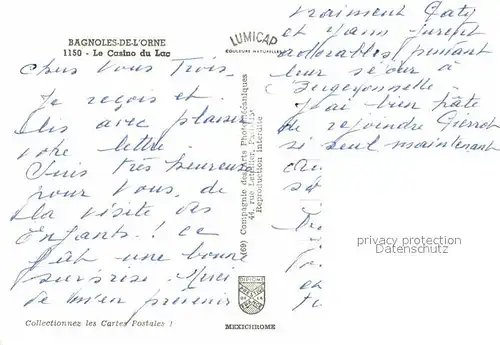 BAGNOLES-DE-L'ORNE
1150 - Le Casino du Lac
Chers Vous Trois
Je reçois et
lis avec plaisir
votre lettre.
Suis très heureuse
pour vous, de
la visite des
Enfants! ce
fût une bonne
surprise. Merci
de m'en prévenir
Collectionnez les Cartes Postales !
LUMICAP
COULEURS NATURELLES
(69) Compagnie des Arts Photomécaniques
44, rue Letellier,
Reproduction Interdite
DIPLOME
PRESTIGE
DE LA
FRANCE
MEXICHROME
vraiment Caty
et Yann furent
adorables pendant
leur séjour à
J'ai bien hâte
de rejoindre Pierrot
si seul maintenant
privacy protection
Datenschutz